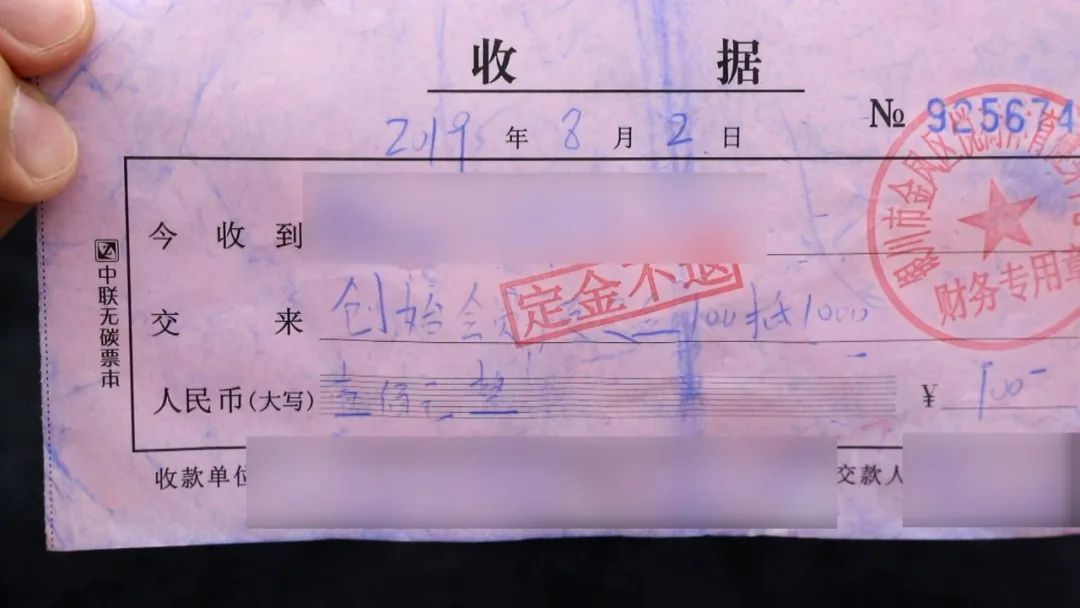 收 据
2019 年 8 月 2 日
№ 925674
今 收 到
交 来 创始会 100抵1000
定金不退
人民币(大写) 壹佰元整
¥ 100-
收款单位
交款人
中联无碳票本
银川市金凤区
财务专用章